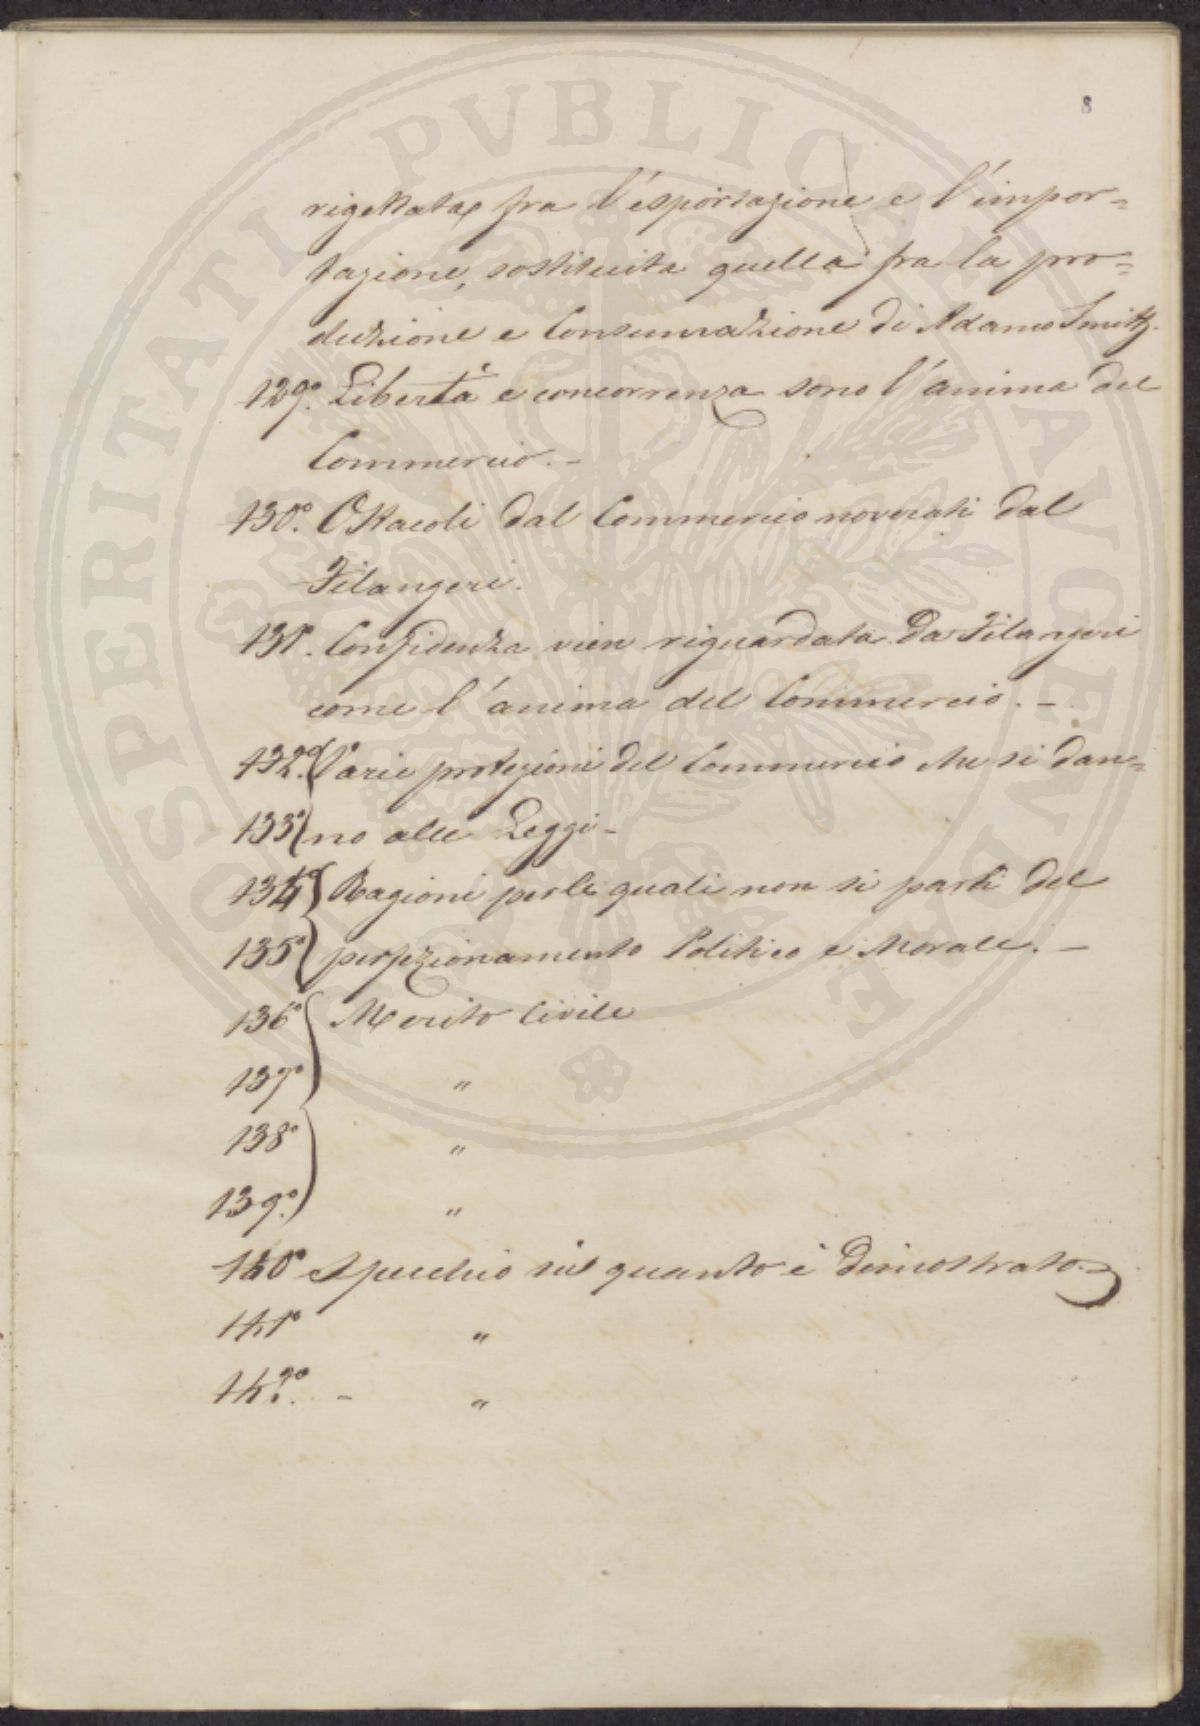 8
rigettata fra l'esportazione e l'impor=
tazione, sostituita quella fra la pro=
duzione e Consumazione di Adamo Smith.
129.° Libertà e concorrenza sono l'anima del
Commercio. -
130.° Ostacoli dal Commercio noverati dal
Filangeri.
131°. Confidenza vien riguardata da Filangeri
come l'anima del Commercio. -
132.° Varie protezioni del Commercio che si dan=
133° no alle Leggi -
134° Ragioni per le quali non si parli del
135° perfezionamento Politico e Morale. -
136° Merito Civile
137° "
138° "
139.° "
140° Specchio sul quanto è dimostrato. -
141° "
142.° - "
PROSPERITATI PVBLICAE AVGENDAE